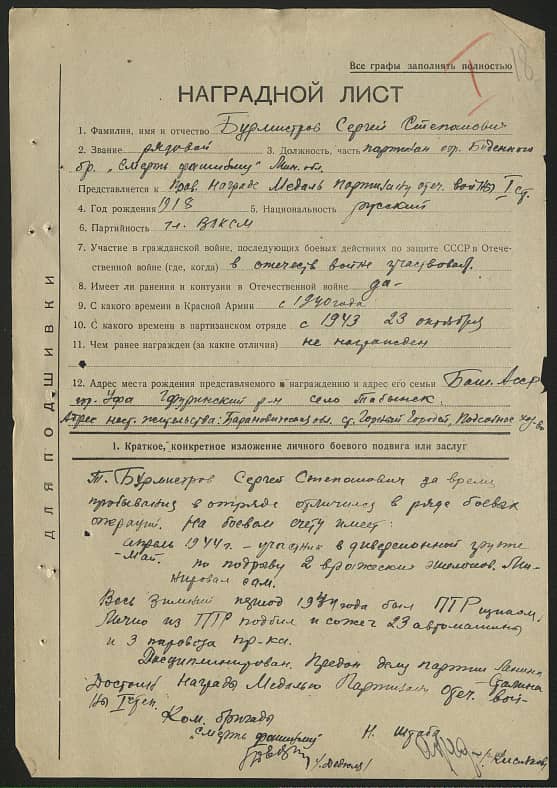 Все графы заполнять полностью
18
НАГРАДНОЙ ЛИСТ
1. Фамилия, имя и отчество Бурмистров Сергей Степанович
2. Звание рядовой 3. Должность, часть партизан отр. Буденного
бр. „Смерть фашизму" Мин. обл.
Представляется к Прав. Награде Медаль партизану отеч. войны I ст.
4. Год рождения 1918 5. Национальность русский
6. Партийность чл. ВЛКСМ
7. Участие в гражданской войне, последующих боевых действиях по защите СССР в Отече-
ственной войне (где, когда) в отечеств войне участвовал
8. Имеет ли ранения и контузии в Отечественной войне да-
9. С какого времени в Красной Армии с 1940 года
10. С какого времени в партизанском отряде с 1943 23 октября
11. Чем ранее награжден (за какие отличия) не награжден
12. Адрес места рождения представляемого к награждению и адрес его семьи Баш. Асср
гор. Уфа р-н село Табынск.
Адрес наст. жительства: Барановическая обл. ст. Городей, Подсобное хоз-во
1. Краткое, конкретное изложение личного боевого подвига или заслуг
Т. Бурмистров Сергей Степанович за время
пребывания в отряде отличился в ряде боевых
операций. На боевом счету имеет:
апрель 1944 г. - участник в диверсионной группе
-Май. по подрыву 2 вражеских эшелонов. Ми-
нировал сам.
Весь зимний период 1944 года был ПТРщиком.
Лично из ПТР подбил и сожег 23 автомашины
и 3 паровоза пр-ка.
Дисциплинирован. Предан делу партии Ленина
-Сталина
Достоин Награды Медалью Партизану Отеч. вой-
ны I степ.
Ком. бригады
„Смерть фашизму"
Н. штаба
ДЛЯ ПОДШИВКИ